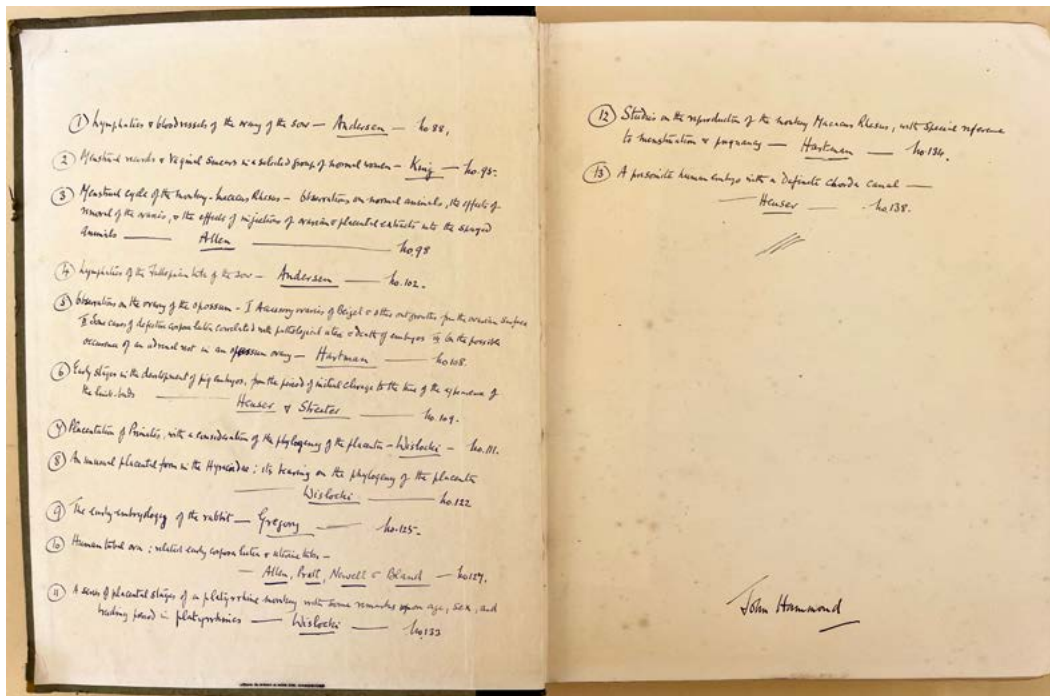 ① Lymphatics & bloodvessels of the ovary of the sow — Andersen — No 88.
② Menstrual records & Vaginal smears in a selected group of normal women — King — No. 95.
③ Menstrual cycle of the monkey - Macacus Rhesus — Observations on normal animals, the effects of
removal of the ovaries, & the effects of injections of ovarian & placental extracts into the spayed
animals — Allen — No. 98
④ Lymphatics of the Fallopian tube of the sow — Andersen — No. 102.
⑤ Observations on the ovary of the opossum — I Accessory ovaries of Beigel & other outgrowths from the ovarian surface
II Some cases of defective corpora lutea correlated with pathological uteri & death of embryos On the possible
occurrence of an adrenal rest in an opossum ovary — Hartman — No 108.
⑥ Early stages in the development of pig embryos, from the period of initial cleavage to the time of the appearance of
the limb-buds — Heuser & Streeter — No. 109.
⑦ Placentation of Primates, with a consideration of the phylogeny of the placenta — Wislocki — No. 111.
⑧ An unusual placental form in the Hyracoidea ; its bearing on the phylogeny of the placenta
— Wislocki — No. 122
⑨ The early embryology of the rabbit — Gregory — No. 125.
⑩ Human tubal ova ; related early corpora lutea & uterine tubes —
— Allen, Pratt, Newell & Bland — No 127.
⑪ A series of placental stages of a platyrrhine monkey with some remarks upon age, sex, and
breeding period in platyrrhines — Wislocki — No. 133
⑫ Studies on the reproduction of the monkey Macacus Rhesus, with special reference
to menstruation & pregnancy — Hartman — No 134.
⑬ A presomite human embryo with a definite chorda canal —
— Heuser — No. 138.
John Hammond